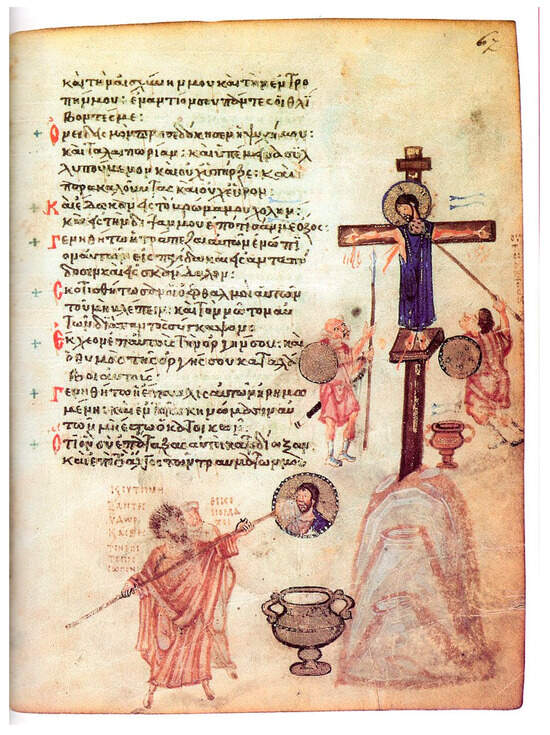 67
καὶ τὴν αἰσχύνην μου καὶ τὴν ἐντρο
πήν μου: ἐναντίον σου πάντες οἱ θλί
βοντές με:
Ὀνειδισμὸν προσεδόκησεν ἡ ψυχή μου:
καὶ ταλαιπωρίαν: καὶ ὑπέμεινα συλ
λυπούμενον καὶ οὐχ ὑπῆρξε: καὶ
παρακαλοῦντας καὶ οὐχ εὗρον:
Καὶ ἔδωκαν εἰς τὸ βρῶμά μου χολήν:
καὶ εἰς τὴν δίψαν μου ἐπότισάν με ὄξος:
Γενηθήτω ἡ τράπεζα αὐτῶν ἐνώπι
ον αὐτῶν εἰς παγίδα καὶ εἰς ἀνταπό
δοσιν καὶ εἰς σκάνδαλον:
Σκοτισθήτωσαν οἱ ὀφθαλμοὶ αὐτῶν
τοῦ μὴ βλέπειν: καὶ τὸν νῶτον αὐ
τῶν διὰ παντὸς σύγκαμψον:
Ἔκχεον ἐπ' αὐτοὺς τὴν ὀργήν σου: καὶ
ὁ θυμὸς τῆς ὀργῆς σου καταλά
βοι αὐτούς:
Γενηθήτω ἡ ἔπαυλις αὐτῶν ἠρημω
μένη: καὶ ἐν τοῖς σκηνώμασιν αὐ
τῶν μὴ ἔστω ὁ κατοικῶν:
Ὅτι ὃν σὺ ἐπάταξας αὐτοὶ κατεδίωξαν
καὶ ἐπὶ τὸ ἄλγος τῶν τραυμάτων μου